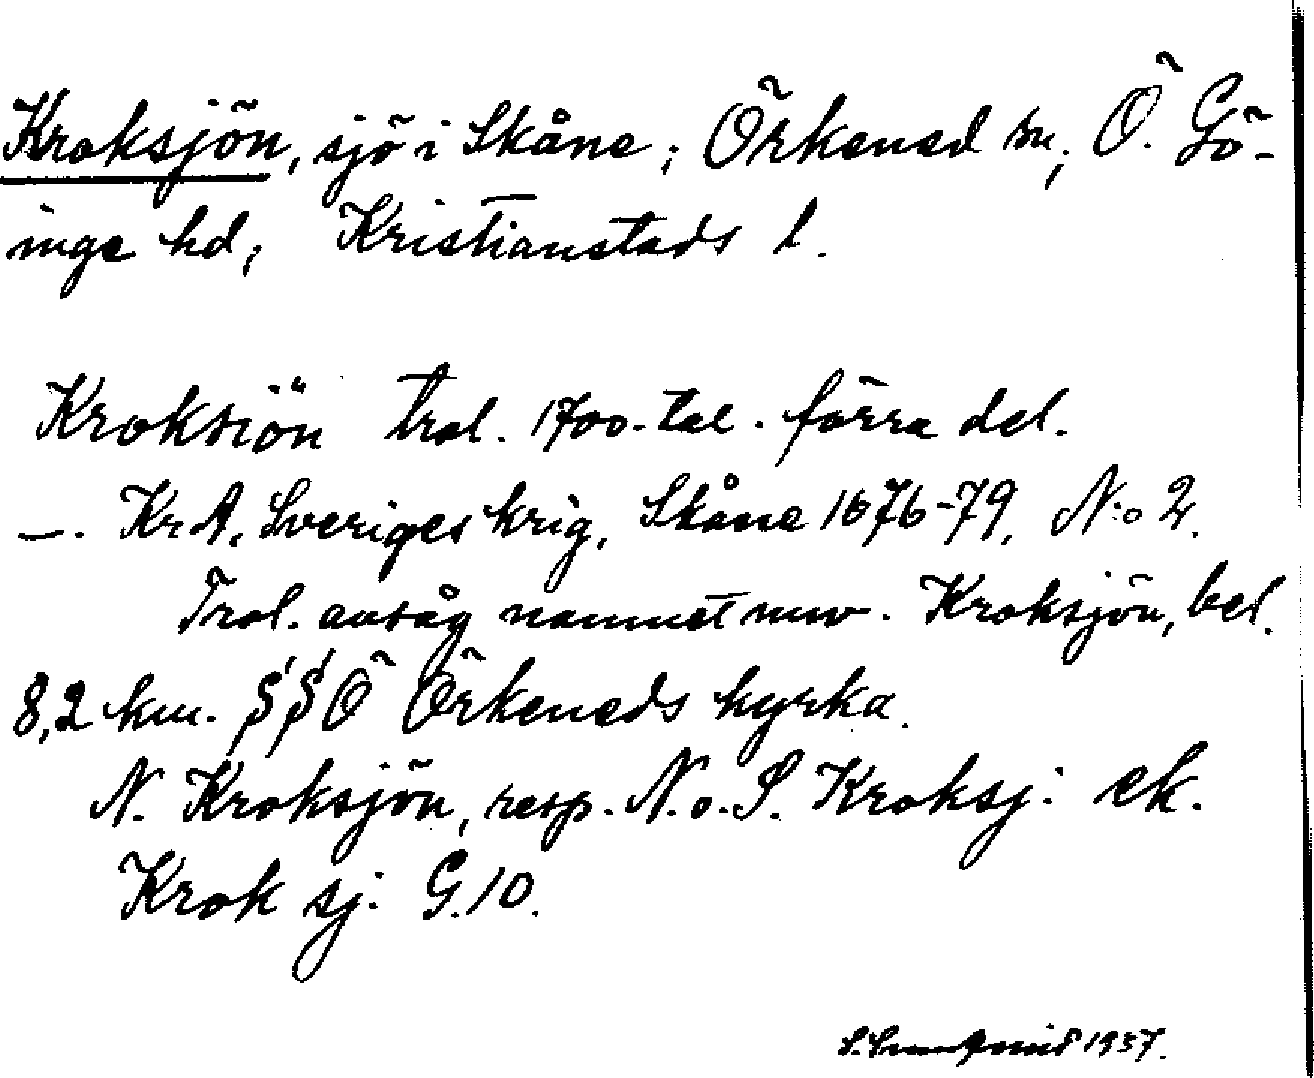 Kroksjön, sjö i Skåne; Örkened sn, Ö. Gö-
inge hd, Kristianstads l.
Kroksiön trol. 1700-tal. förra del.
—. KrA. Sveriges krig, Skåne 1676-79. N:o 2.
Trol. avsåg namnet nuv. Kroksjön, bel.
8,2 km. SSÖ Örkeneds kyrka.
N. Kroksjön, resp. N. o. S. Kroksj: ek.
Krok sj: G.10.
1937.